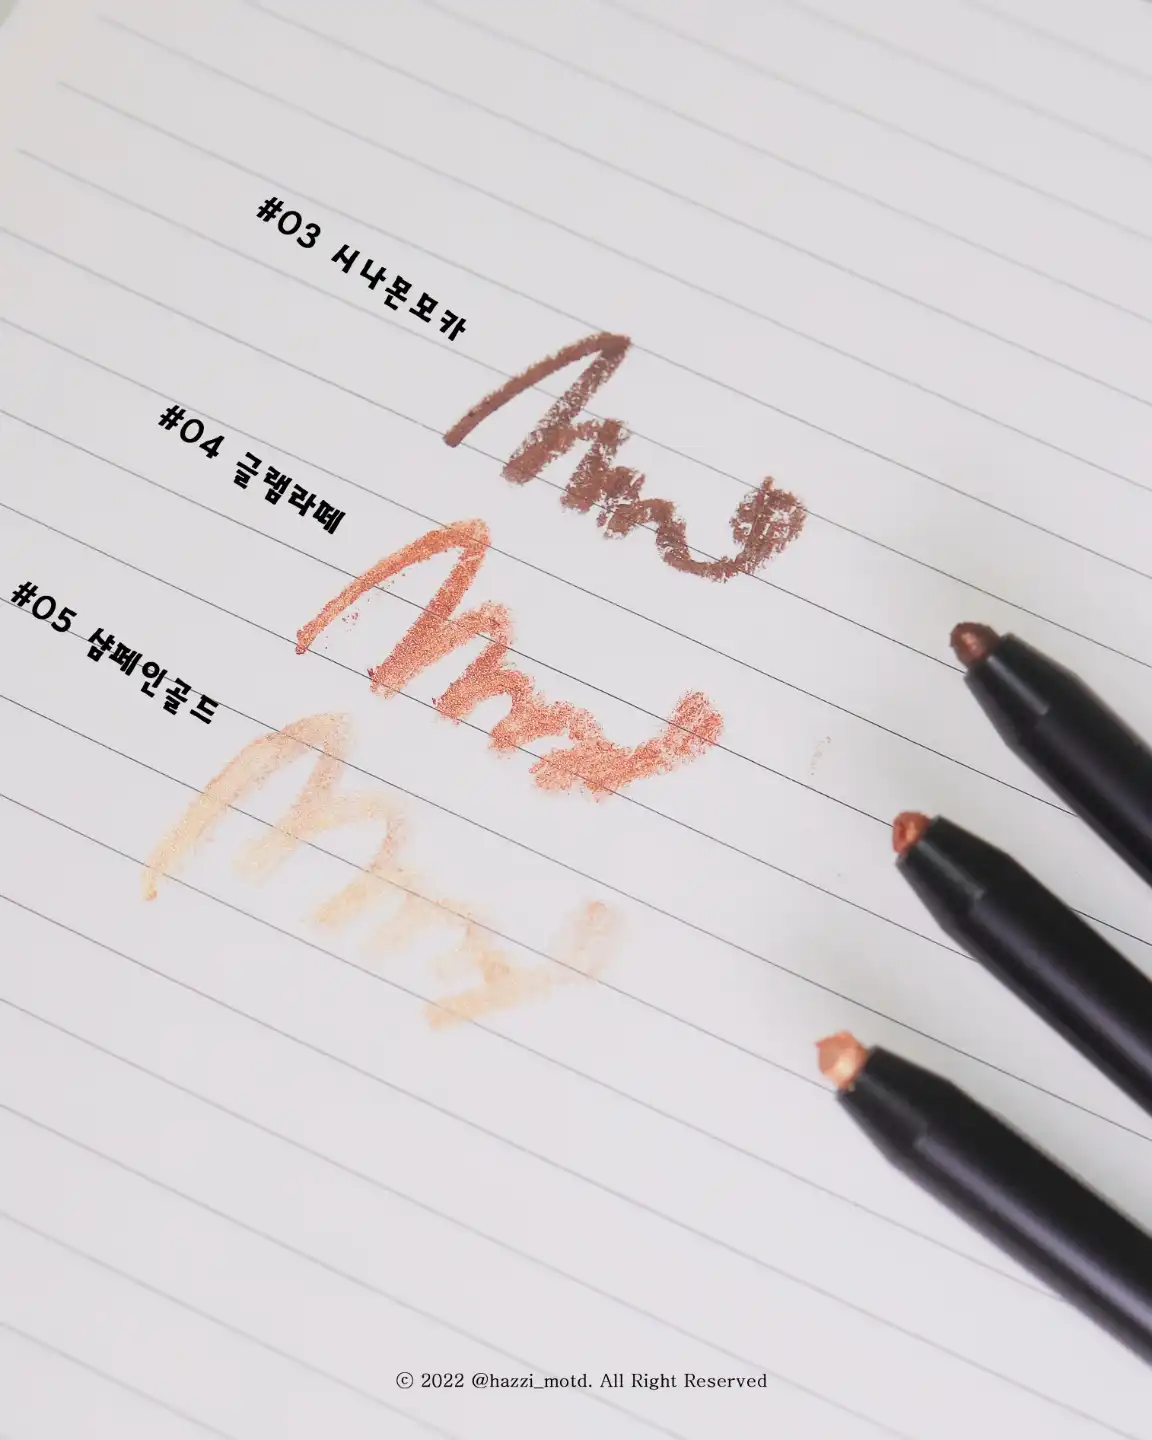 #03 시나몬모카
#04 글램라떼
#05 샴페인골드
ⓒ 2022 @hazzi_motd. All Right Reserved